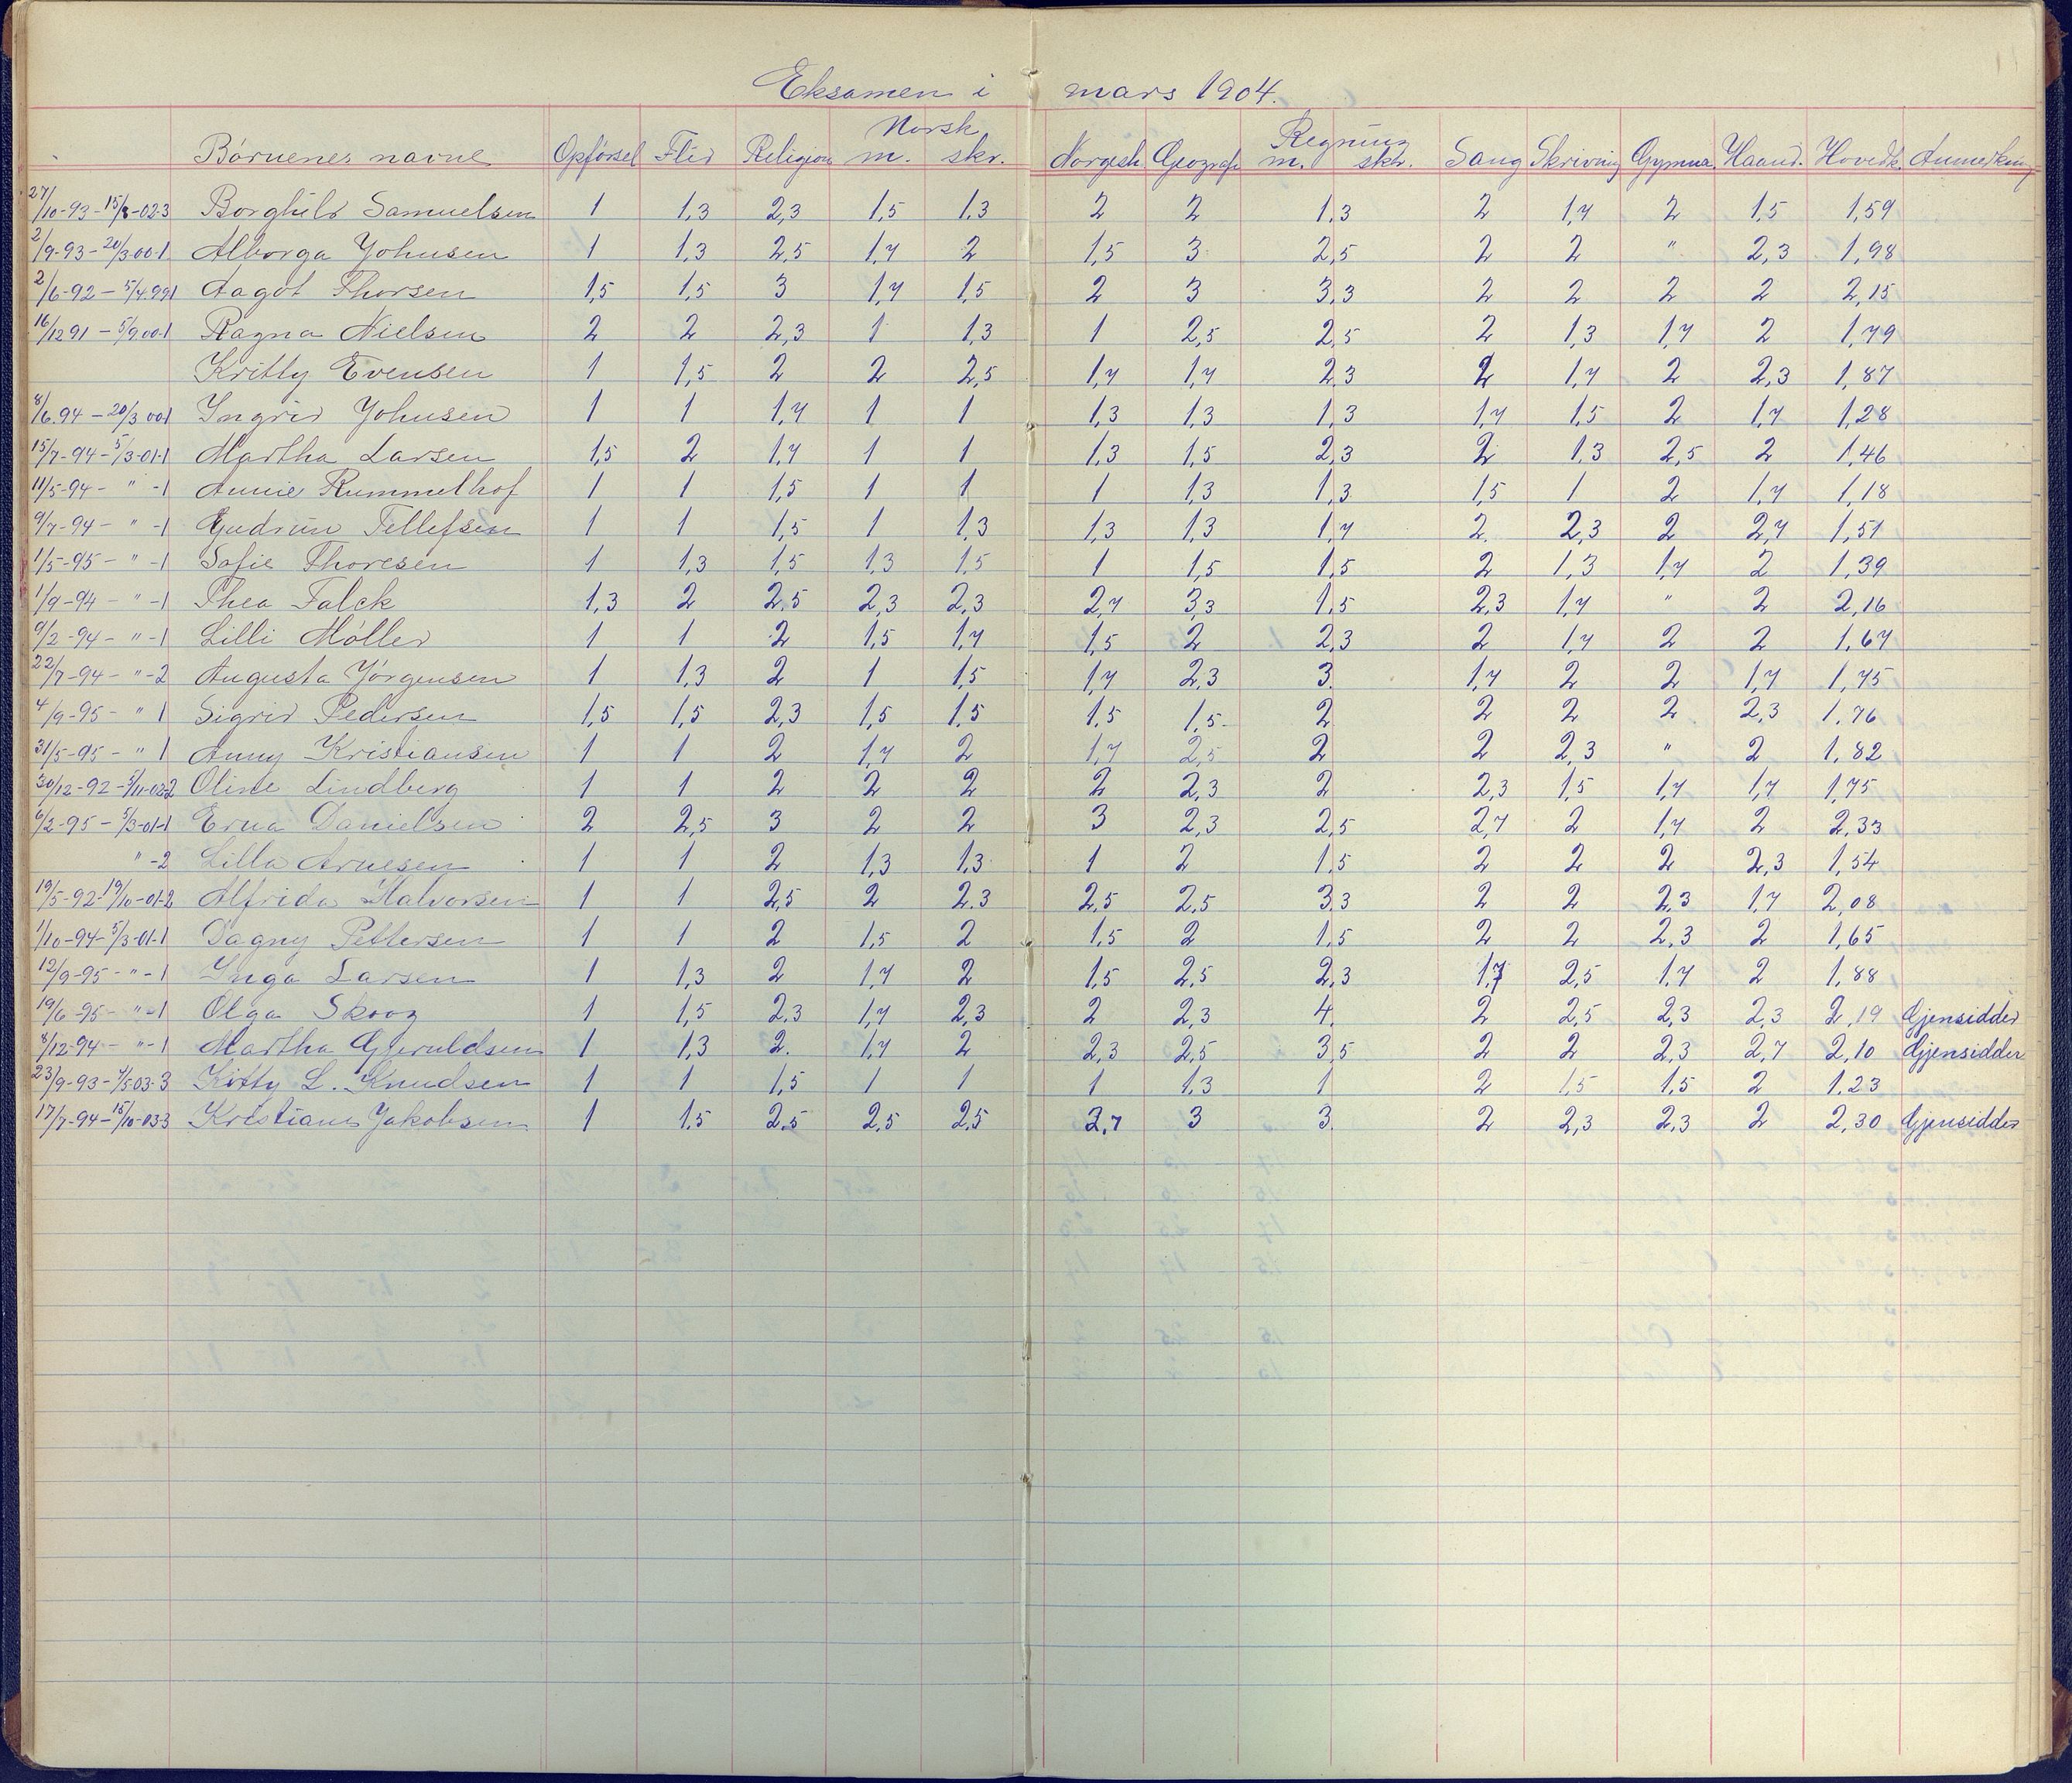 Eksamen i mars 1904.
Norsk Regning
Børnenes navne Opførsel Flid Religion m. skr. Norgesh. Geografi m. skr. Sang Skrivning Gymna. Haand. Hovedk. Anmerkning
27/10-93-15/8-02-3 Borghild Samuelsen 1 1,3 2,3 1,5 1,3 2 2 1,3 2 1,7 2 1,5 1,59
2/9-93-20/3-00-1 Alborga Johnsen 1 1,3 2,5 1,7 2 1,5 3 2,5 2 2 " 2,3 1,98
2/6-92-5/4.99 1 Aagot Thorsen 1,5 1,5 3 1,7 1,5 2 3 3,3 2 2 2 2 2,15
16/12 91-5/9 00-1 Ragna Nielsen 2 2 2,3 1 1,3 1 2,5 2,5 2 1,3 1,7 2 1,79
Kritly Evensen 1 1,5 2 2 2,5 1,7 1,7 2,3 2 1,7 2 2,3 1,87
8/6.94-20/3 00-1 Ingrid Johnsen 1 1 1,7 1 1 1,3 1,3 1,3 1,7 1,5 2 1,7 1,28
15/7-94-5/3-01-1 Martha Larsen 1,5 2 1,7 1 1 1,3 1,5 2,3 2 1,3 2,5 2 1,46
11/5-94- " -1 Annie Rummelhof 1 1 1,5 1 1 1 1,3 1,3 1,5 1 2 1,7 1,18
9/7-94- " -1 Gudrun Tellefsen 1 1 1,5 1 1,3 1,3 1,3 1,7 2. 2,3 2 2,7 1,51
1/5-95- " -1 Sofie Thoresen 1 1,3 1,5 1,3 1,5 1 1,5 1,5 2 1,3 1,7 2 1,39
1/9-94- " -1 Thea Falck 1,3 2 2,5 2,3 2,3 2,7 3,3 1,5 2,3 1,7 " 2 2,16
9/2-94- " -1 Lilli Møller 1 1 2 1,5 1,7 1,5 2 2,3 2 1,7 2 2 1,67
22/7-94- " -2 Augusta Jørgensen 1 1,3 2 1 1,5 1,7 2,3 3. 1,7 2 2 1,7 1,75
4/9-95- " 1 Sigrid Pedersen 1,5 1,5 2,3 1,5 1,5 1,5 1,5 2 2 2 2 2,3 1,76
31/5-95- " 1 Anny Kristiansen 1 1 2 1,7 2 1,7 2,5 2 2 2,3 " 2 1,82
30/12-92-5/11-02-2 Oline Lindberg 1 1 2 2 2 2 2,3 2 2,3 1,5 1,7 1,7 1,75
6/2-95-5/3-01-1 Erna Danielsen 2 2,5 3 2 2 3 2,3 2,5 2,7 2 1,7 2 2,33
" -2 Lilla Arnesen 1 1 2 1,3 1,3 1 2 1,5 2 2 2 2,3 1,54
19/5-92-19/10-01-2 Alfrida Halvorsen 1 1 2,5 2 2,3 2,5 2,5 3,3 2 2 2,3 1,7 2,08
1/10-94-5/3-01-1 Dagny Pettersen 1 1 2 1,5 2 1,5 2 1,5 2 2 2,3 2 1,65
12/9-95- " -1 Inga Larsen 1 1,3 2 1,7 2 1,5 2,5 2,3 1,7 2,5 1,7 2 1,88
19/6-95- " -1 Olga Skoog 1 1,5 2,3 1,7 2,3 2 2,3 4. 2 2,5 2,3 2,3 2,19 Gjensidder
8/12-94- " -1 Martha Gjeruldsen 1 1,3 2. 1,7 2 2,3 2,5 3,5 2 2 2,3 2,7 2,10 Gjensidder
23/9-93-4/5 03-3 Kitty L. Knudsen 1 1 1,5 1 1 1 1,3 1 2 1,5 1,5 2 1,23
17/7-94-15/10-03 3 Kristiane Jakobsen 1 1,5 2,5 2,5 2,5 2,7 3 3. 2 2,3 2,3 2 2,30 Gjensidder